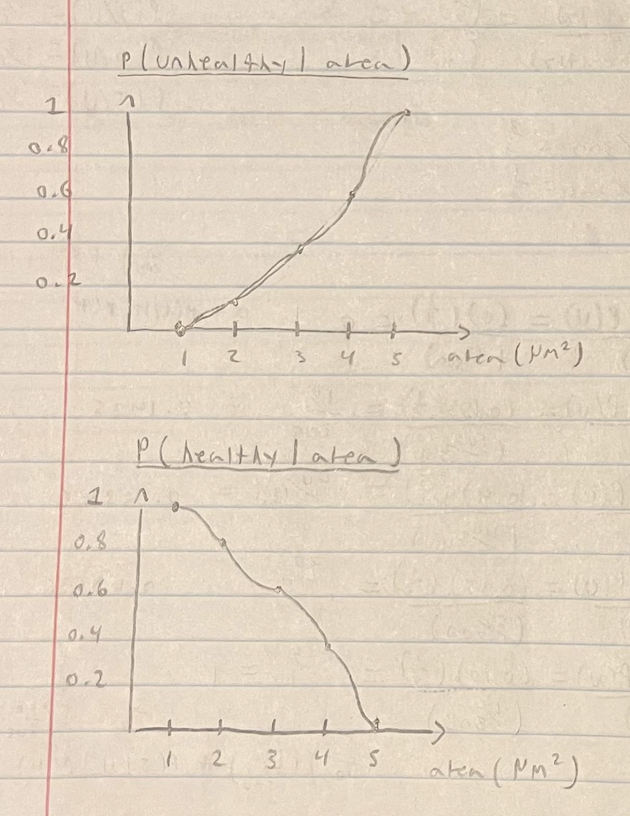 P(unhealthy | area)
1
0.8
0.6
0.4
0.2
1 2 3 4 5 area (μm²)
P(healthy | area)
1
0.8
0.6
0.4
0.2
1 2 3 4 5 area (μm²)